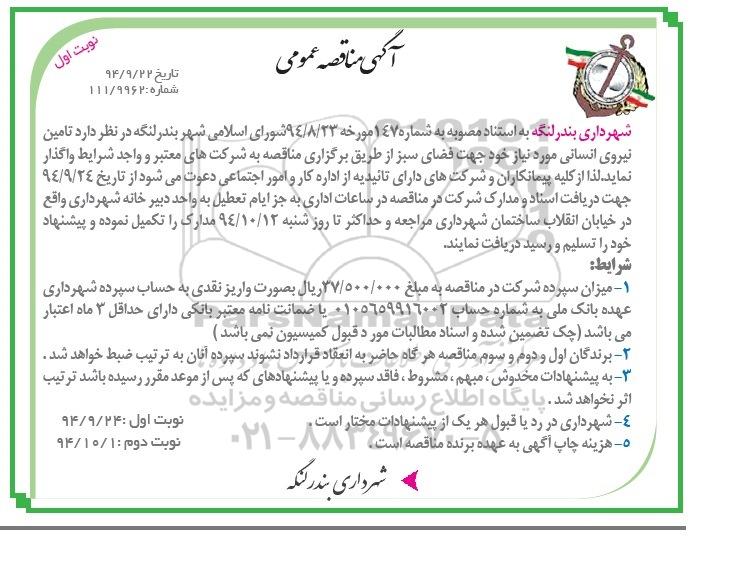 آگهی مناقصه عمومی
نوبت اول
تاریخ ۹۴/۹/۲۲
شماره: ۱۱۱/۹۹۶۲
شهرداری بندرلنگه به استناد مصوبه به شماره ۱۴۷ مورخه ۹۴/۸/۲۳ شورای اسلامی شهر بندرلنگه در نظر دارد تامین
نیروی انسانی مورد نیاز خود جهت فضای سبز از طریق برگزاری مناقصه به شرکت های معتبر و واجد شرایط واگذار
نماید. لذا از کلیه پیمانکاران و شرکت های دارای تائیدیه از اداره کار و امور اجتماعی دعوت می شود از تاریخ ۹۴/۹/۲۴
جهت دریافت اسناد و مدارک شرکت در مناقصه در ساعات اداری به جز ایام تعطیل به واحد دبیر خانه شهرداری واقع
در خیابان انقلاب ساختمان شهرداری مراجعه و حداکثر تا روز شنبه ۹۴/۱۰/۱۲ مدارک را تکمیل نموده و پیشنهاد
خود را تسلیم و رسید دریافت نمایند.
شرایط:
۱- میزان سپرده شرکت در مناقصه به مبلغ ۳۷/۵۰۰/۰۰۰ ریال بصورت واریز نقدی به حساب سپرده شهرداری
عهده بانک ملی به شماره حساب ۰۱۰۵۶۵۹۹۱۶۰۰۲ یا ضمانت نامه معتبر بانکی دارای حداقل ۳ ماه اعتبار
می باشد (چک تضمین شده و اسناد مطالبات مور د قبول کمیسیون نمی باشد)
۲- برندگان اول و دوم و سوم مناقصه هر گاه حاضر به انعقاد قرارداد نشوند سپرده آنان به ترتیب ضبط خواهد شد.
۳- به پیشنهادات مخدوش، مبهم، مشروط، فاقد سپرده و یا پیشنهادهای که پس از موعد مقرر رسیده باشد ترتیب
اثر نخواهد شد.
۴- شهرداری در رد یا قبول هر یک از پیشنهادات مختار است.
نوبت اول: ۹۴/۹/۲۴
۵- هزینه چاپ آگهی به عهده برنده مناقصه است.
نوبت دوم: ۹۴/۱۰/۱
شهرداری بندرلنگه
ParsNamadData
پایگاه اطلاع رسانی مناقصه و مزایده